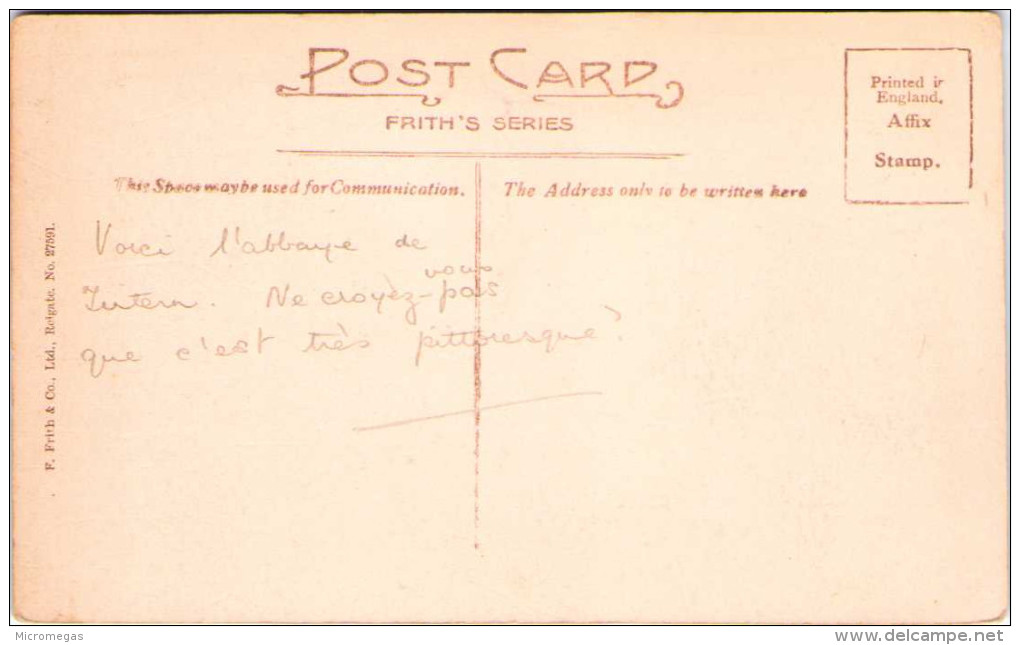 POST CARD
FRITH'S SERIES
Printed in
England.
Affix
Stamp.
This Space may be used for Communication.
The Address only to be written here
Voici l'abbaye de
Tintern. Ne croyez-vous pas
que c'est très pittoresque?
F. Frith & Co., Ltd., Reigate. No. 27591.
Micromegas
www.delcampe.net